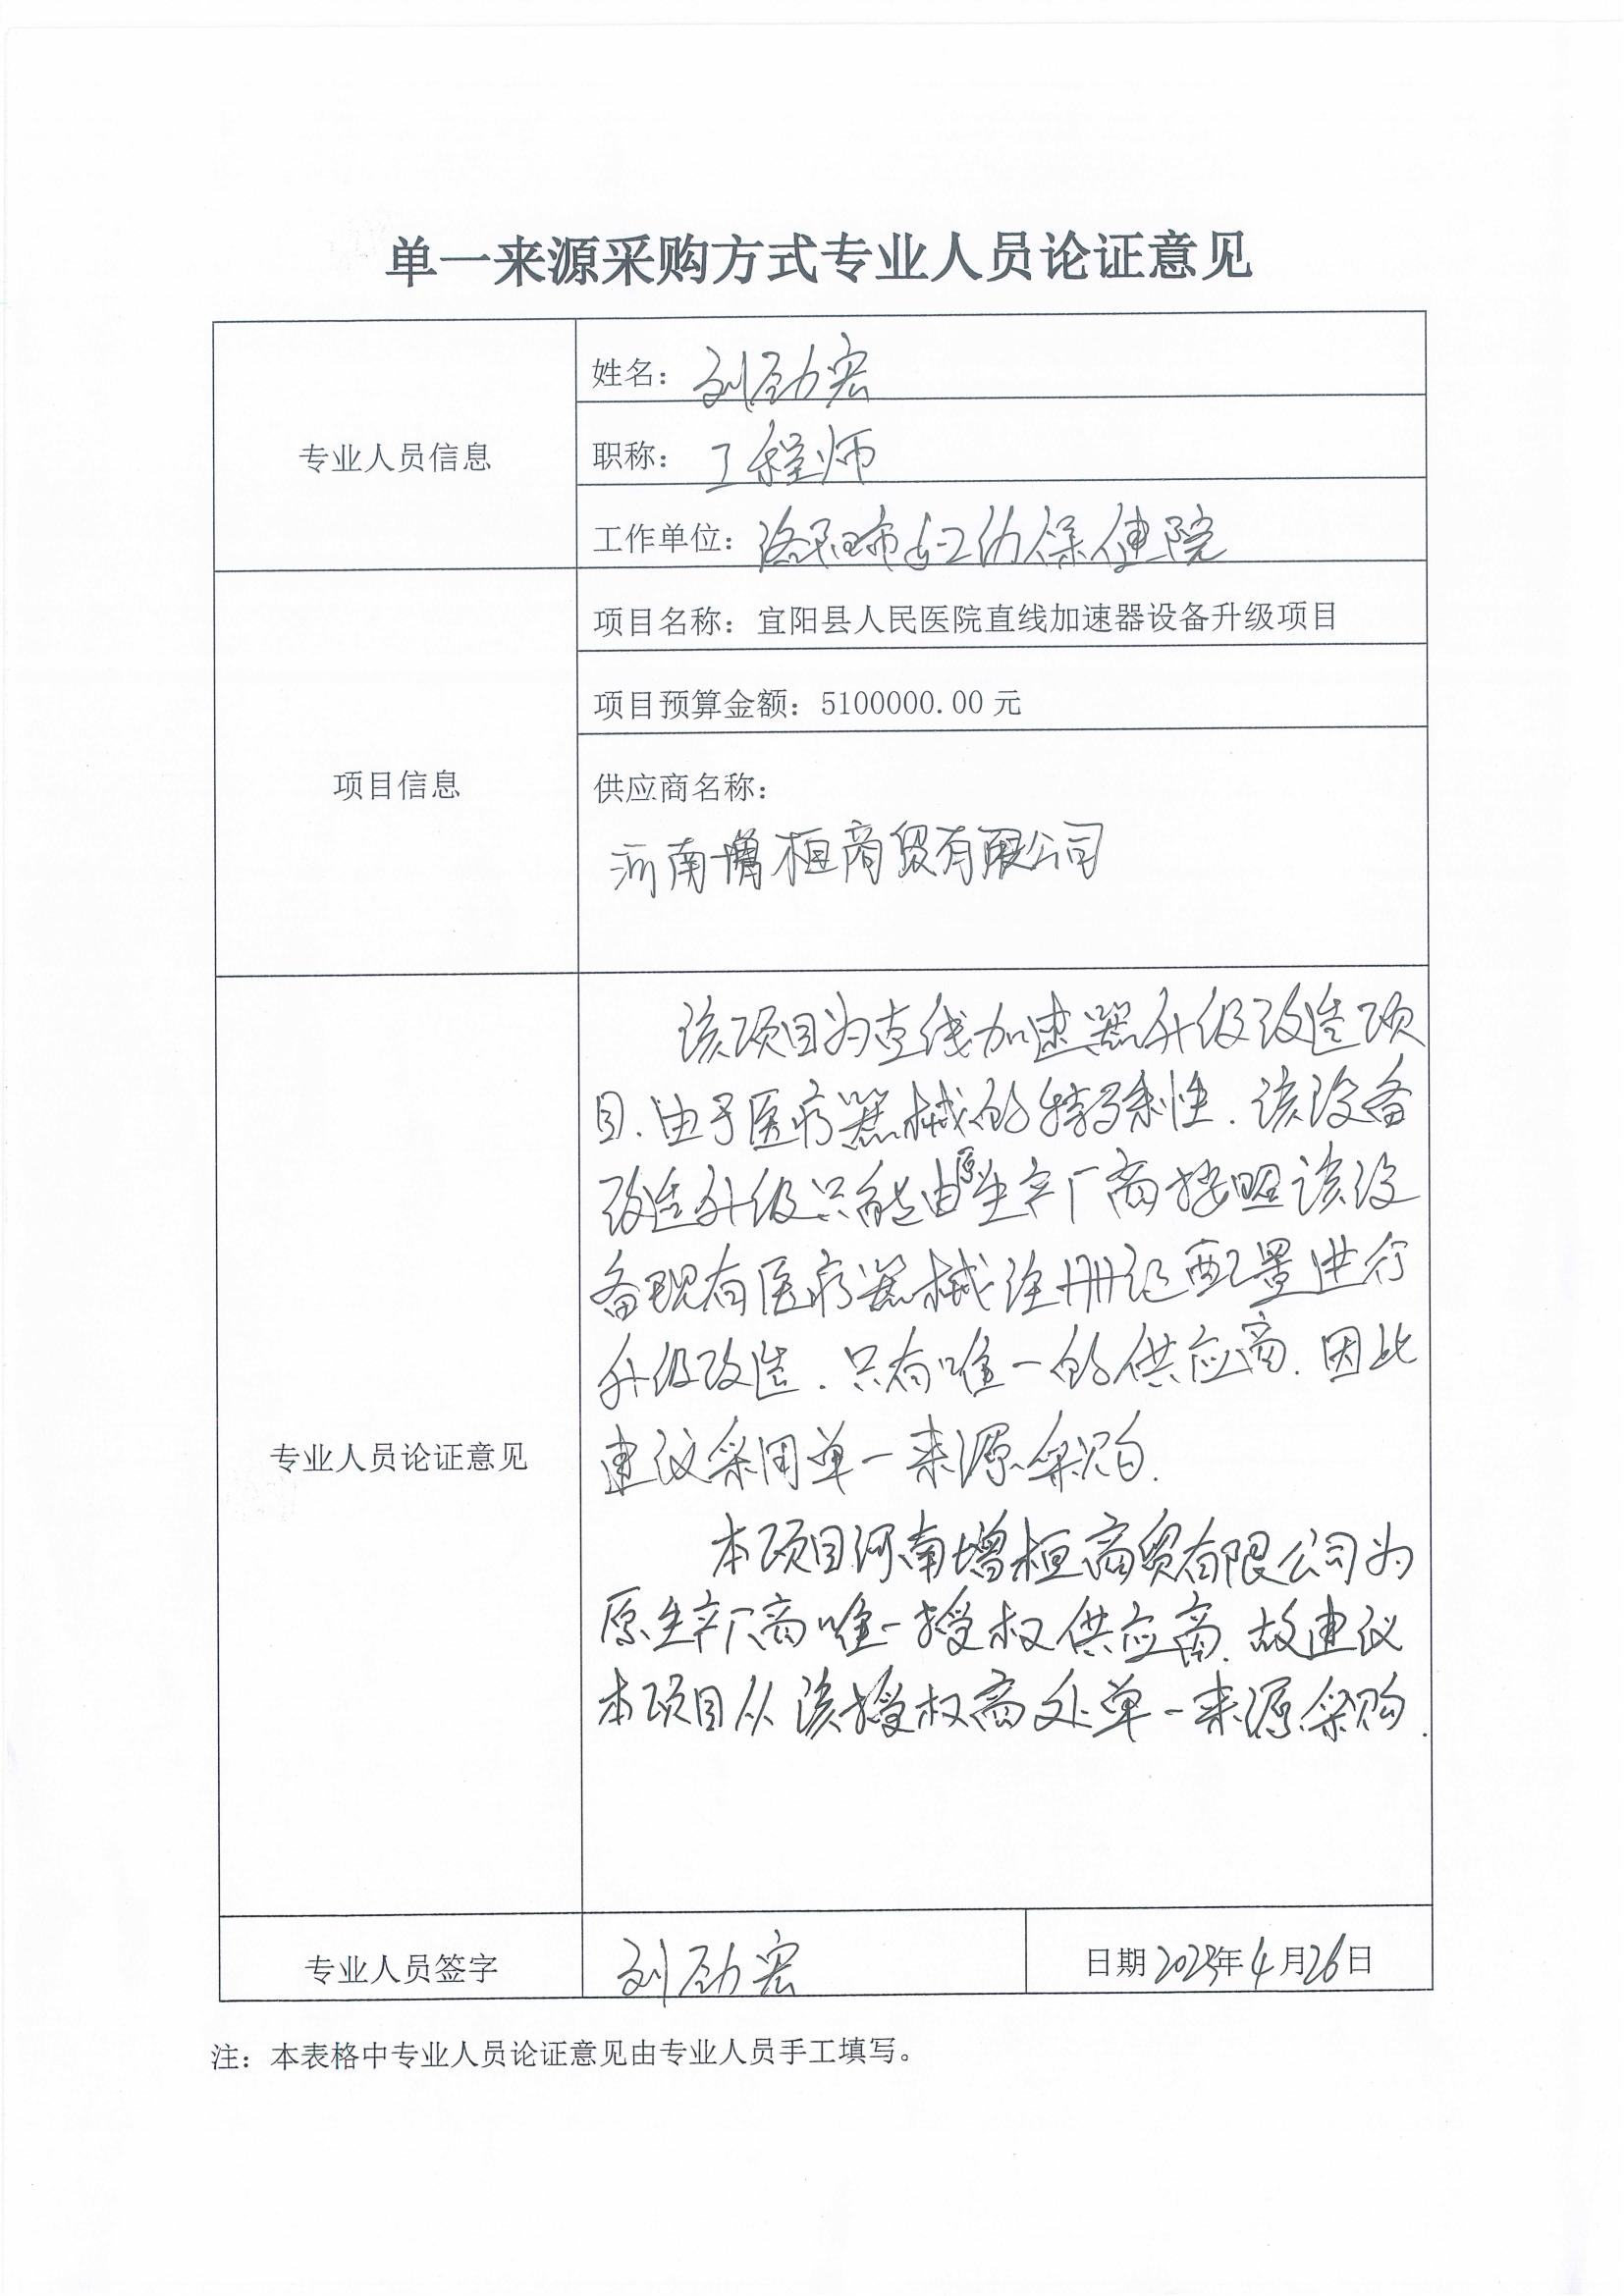 单一来源采购方式专业人员论证意见
专业人员信息
姓名：刘劲宏
职称：工程师
工作单位：洛阳市妇幼保健院
项目信息
项目名称：宜阳县人民医院直线加速器设备升级项目
项目预算金额：5100000.00 元
供应商名称：
河南增桓商贸有限公司
专业人员论证意见
该项目为直线加速器升级改造项
目.由于医疗器械的特殊性.该设备
改造升级只能由原生产厂商按照该设
备现有医疗器械注册证配置进行
升级改造.只有唯一的供应商.因此
建议采用单一来源采购.
本项目河南增桓商贸有限公司为
原生产厂商唯一授权供应商.故建议
本项目从该授权商处单一来源采购.
专业人员签字
刘劲宏
日期 年4月26日
注：本表格中专业人员论证意见由专业人员手工填写。